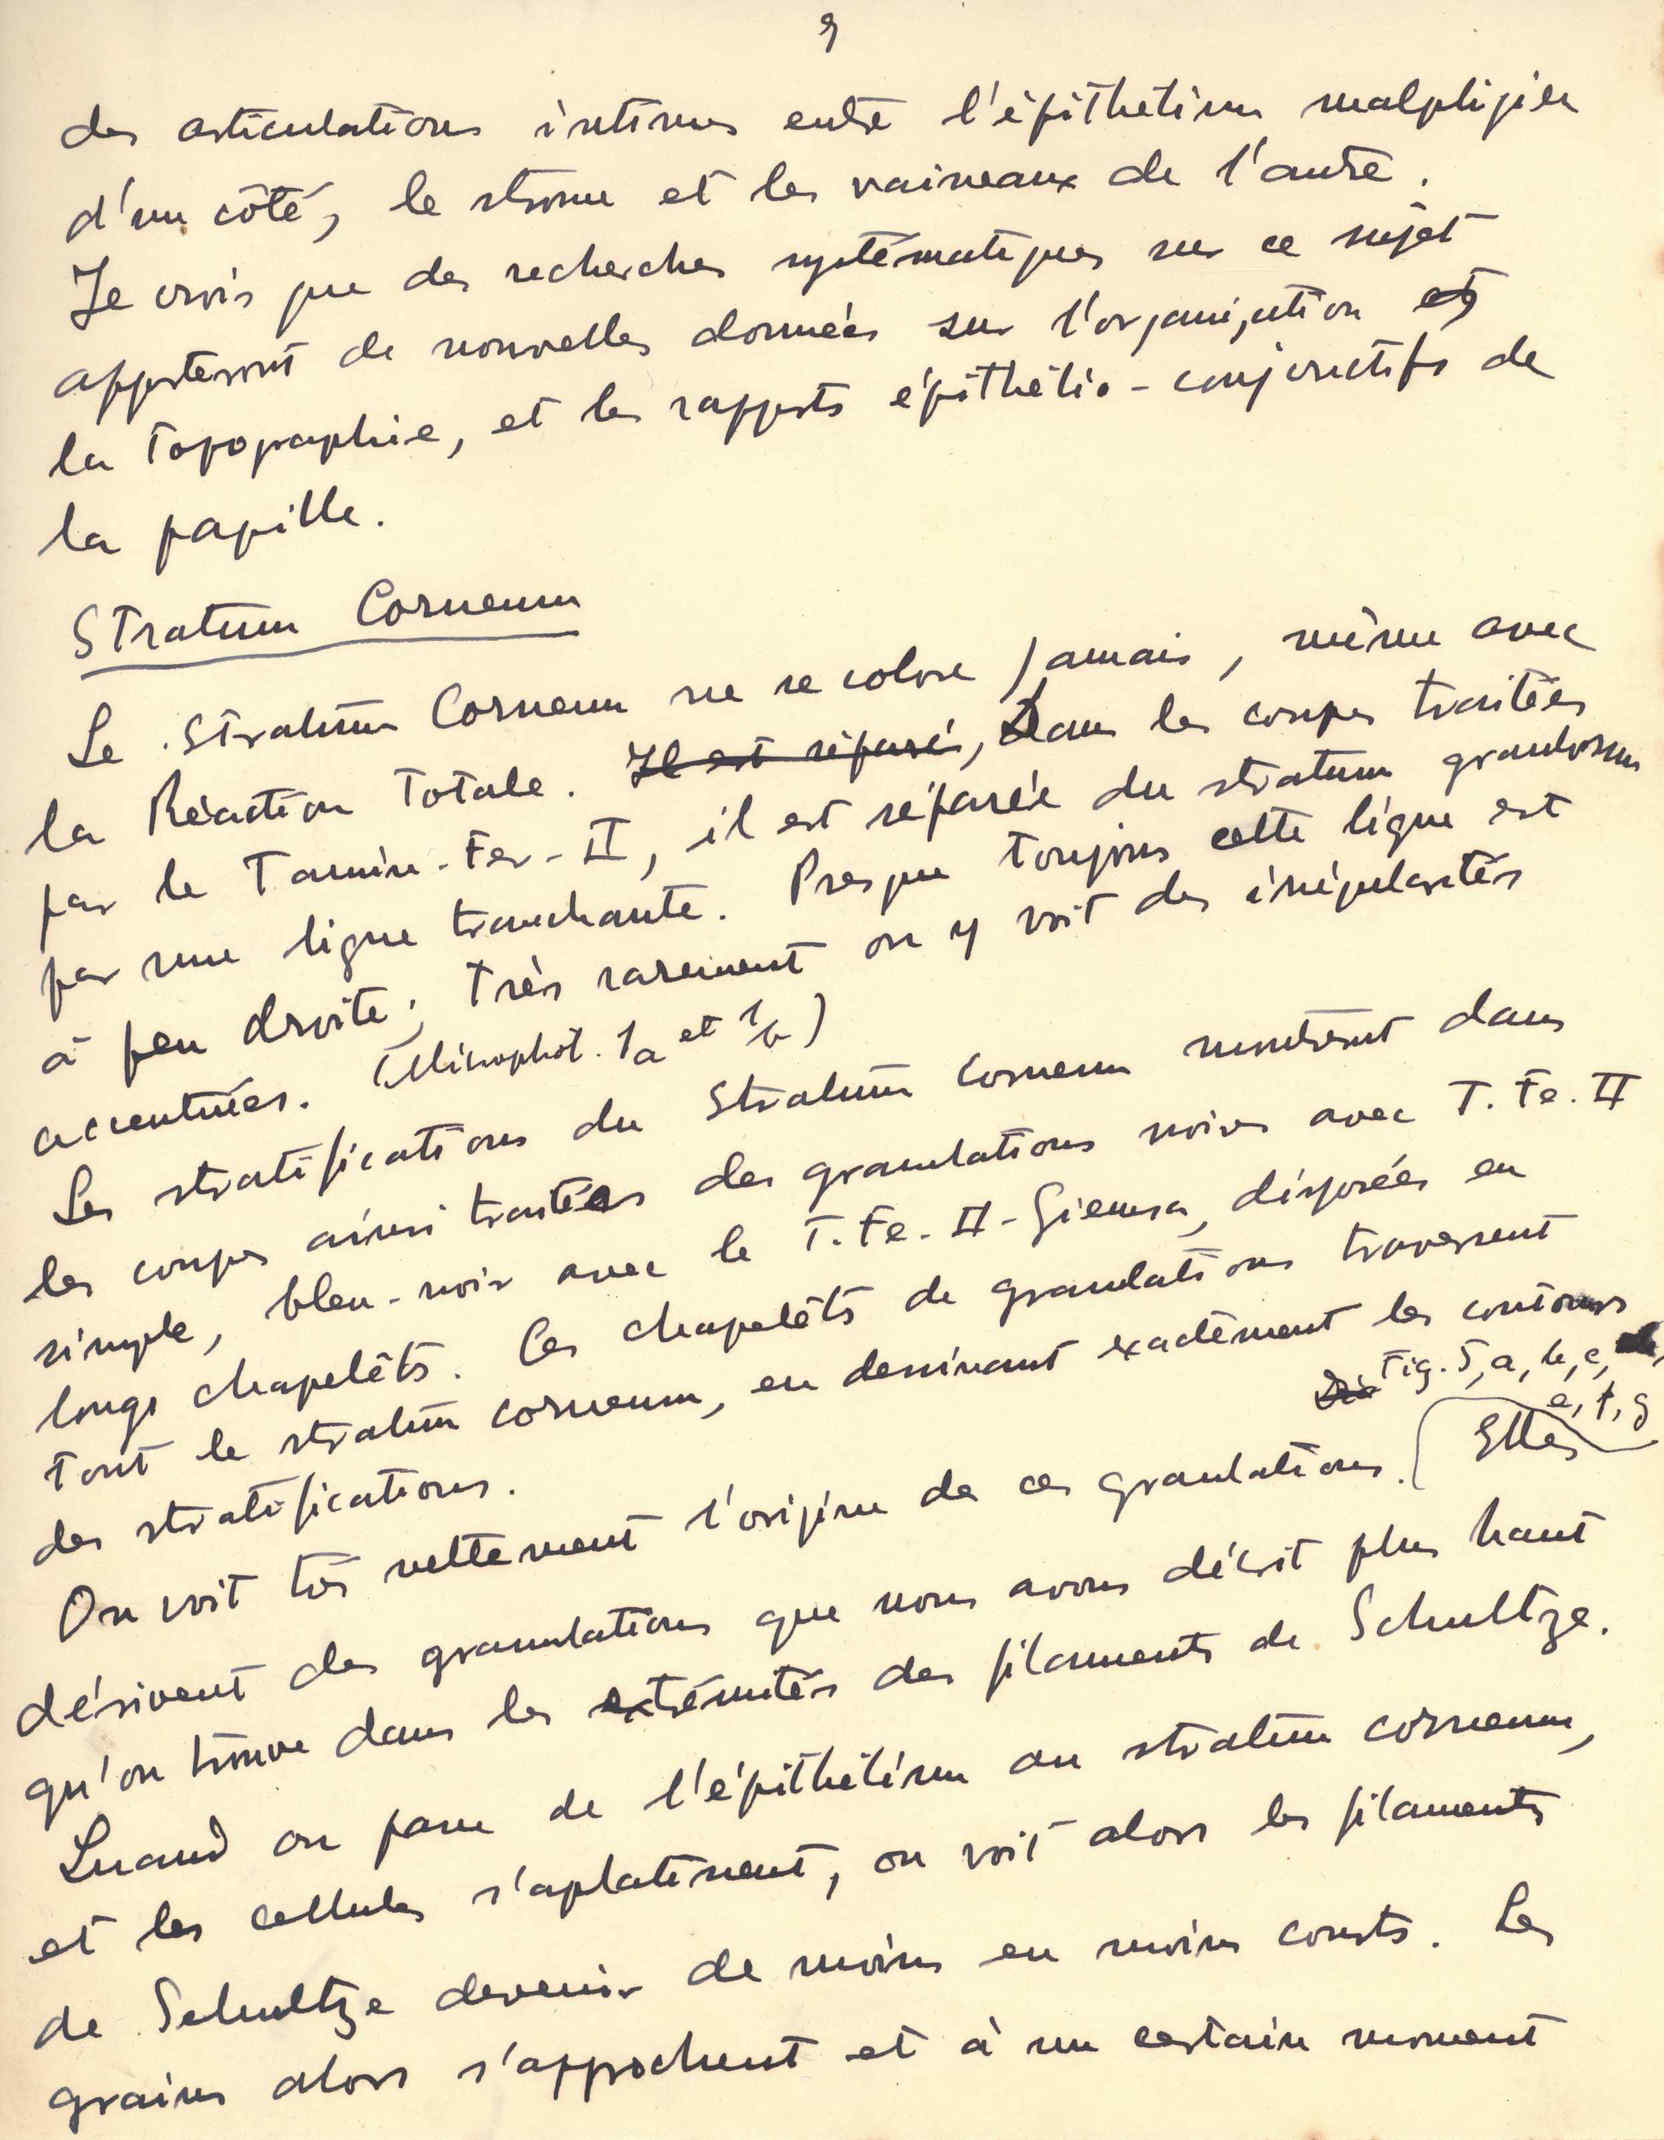 9
des articulations intimes entre l'épithélium malphigien
d'un côté, le stroma et les vaisseaux de l'autre.
Je crois que des recherches systématiques sur ce sujet
apporteront de nouvelles données sur l'organisation et
la Topographie, et les rapports épithélio-conjonctifs de
la papille.
Stratum Corneum
Le Stratum Corneum ne se colore jamais, même avec
la Réaction Totale. Il est séparé, Dans les coupes traitées
par le Tannin-Fer-II, il est séparée du stratum granulosum
par une ligne tranchante. Presque toujours cette ligne est
à peu droite; Très rarement on y voit des irrégularités
accentuées. (Microphot. 1a et 1b)
Les stratifications du Stratum Corneum montrent dans
les coupes ainsi traitées des granulations noires avec T. Fe. II
simple, bleu-noir avec le T. Fe. II-Giemsa, disposées en
longs chapelêts. Ces chapelêts de granulations traversent
Tout le stratum corneum, en dessinant exactement les contours
des stratifications.
Fig. 5, a, b, c,
e, f, g
On voit très nettement l'origine de ces granulations. Elles
dérivent des granulations que nous avons décrit plus haut
qu'on trouve dans les extrémités des filaments de Schultze.
Quand on passe de l'épithélium au stratum corneum,
et les cellules s'aplatissent, on voit alors les filaments
de Schultze devenir de moins en moins courts. Les
grains alors s'approchent et à un certain moment